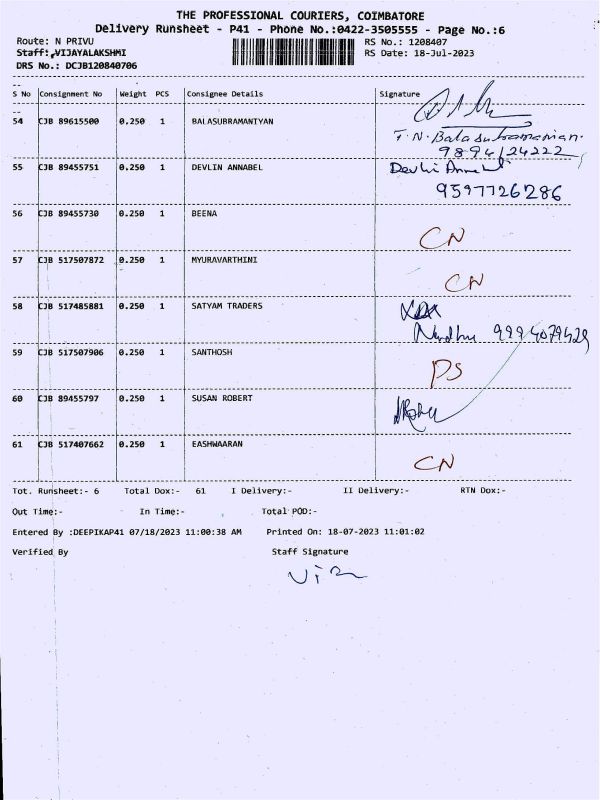 THE PROFESSIONAL COURIERS, COIMBATORE
Delivery Runsheet - P41 - Phone No.:0422-3505555 - Page No.:6
Route: N PRIVU RS No.: 1208407
Staff: VIJAYALAKSHMI RS Date: 18-Jul-2023
DRS No.: DCJB120840706
S No Consignment No Weight PCS Consignee Details Signature
54 CJB 89615500 0.250 1 BALASUBRAMANIYAN
T.N. Balasubramanian.
9894124222
55 CJB 89455751 0.250 1 DEVLIN ANNABEL Devlin
9597726286
56 CJB 89455730 0.250 1 BEENA
CN
57 CJB 517507872 0.250 1 MYURAVARTHINI
CN
58 CJB 517485881 0.250 1 SATYAM TRADERS
Nandhu 9994079429
59 CJB 517507906 0.250 1 SANTHOSH
DS
60 CJB 89455797 0.250 1 SUSAN ROBERT
61 CJB 517407662 0.250 1 EASHWAARAN
CN
Tot. Runsheet:- 6 Total Dox:- 61 I Delivery:- II Delivery:- RTN Dox:-
Out Time:- In Time:- Total POD:-
Entered By :DEEPIKAP41 07/18/2023 11:00:38 AM Printed On: 18-07-2023 11:01:02
Verified By Staff Signature